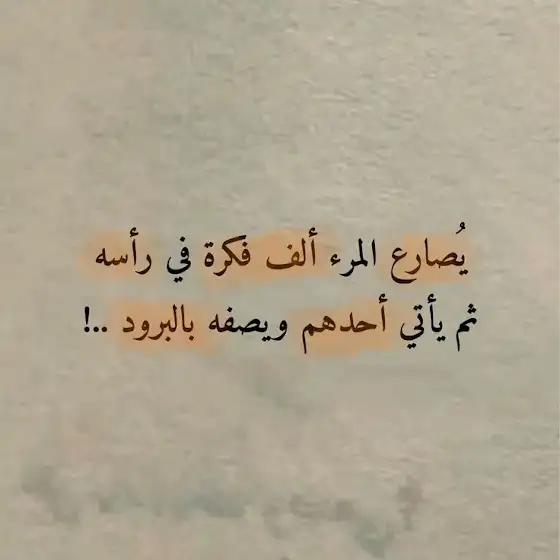 يُصارع المرء ألف فكرة في رأسه
ثم يأتي أحدهم ويصفه بالبرود ..!